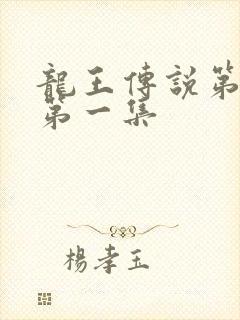 龍王傳說第
第一集
楊孝玉